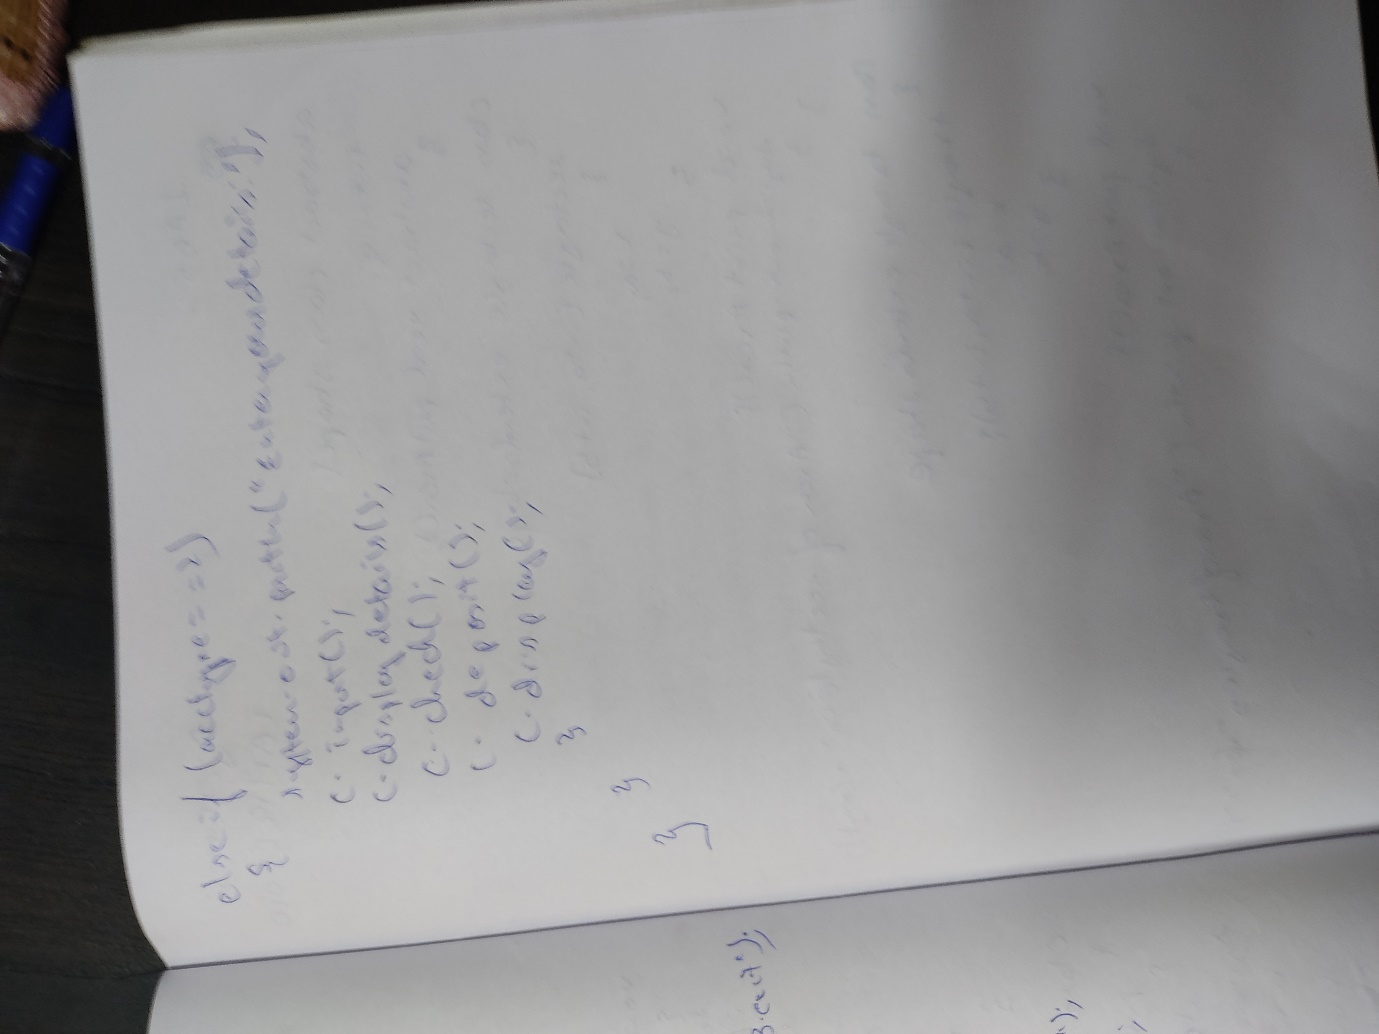 else if (acctype==2)
{
system.out.println("enter your details:");
c. input();
c. display details();
c. check();
c. deposit();
c. display();
}
}
}
3.exit");
);
;